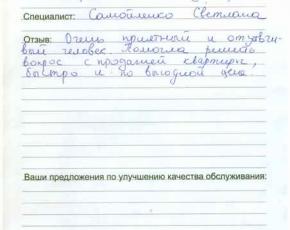 Специалист: Самойленко Светлана
Отзыв: Очень приятный и отзывчи-
вый человек. Помогла решить
вопрос с продажей квартиры,
быстро и по выгодной цене.
Ваши предложения по улучшению качества обслуживания: